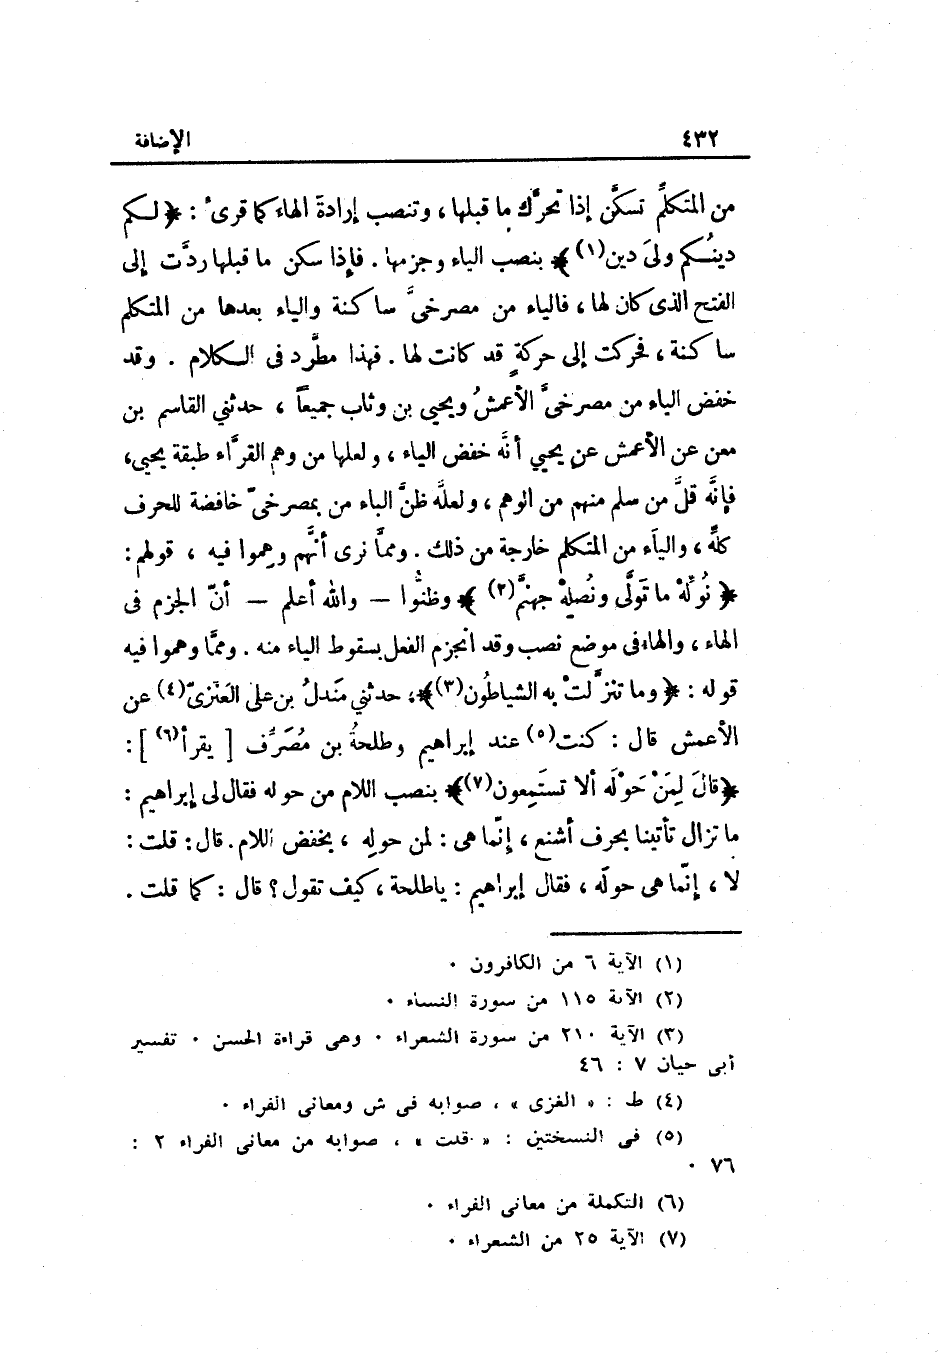 ٤٣٢ الإضافة
من المتكلِّم تسكَّن إذا تحرَّك ما قبلها ، وتنصب إرادةَ الهاء كما قرىءُ : ﴿ لكم
دينُكم ولىَ دين(١) ﴾ بنصب الياء وجزمها . فإذا سكن ما قبلها ردَّت إلى
الفتح الذى كان لها ، فالياء من مصرخىَّ ساكنة والياء بعدها من المتكلم
ساكنة ، فحركت إلى حركةٍ قد كانت لها . فهذا مطَّرد فى الكلام . وقد
خفض الياء من مصرخىَّ الأعمشُ ويحيى بن وثاب جميعاً ، حدثني القاسم بن
معن عن الأعمش عن يحيي أنَّه خفض الياء ، ولعلها من وهم القرَّاء طبقة يحيى،
فإنَّه قلَّ من سلم منهم من الوهم ، ولعلَّه ظنَّ الباء من بمصرخىّ خافضة للحرف
كلِّه ، والياَء من المتكلم خارجة من ذلك . وممَّا نرى أنَّهم وهموا فيه ، قولهم :
﴿ نُوَلِّهْ ما تَوَلَّى ونُصلِهْ جهنَّم(٢) ﴾ وظنُّوا — والله أعلم — أنّ الجزم فى
الهاء ، والهاء فى موضع نصب وقد انجزم الفعل بسقوط الياء منه . وممَّا وهموا فيه
قوله : ﴿ وما تنزَّلتْ به الشياطُون(٣)﴾، حدثني مَندلُ بن على العَنَزىّ(٤) عن
الأعمش قال : كنت(٥) عند إبراهيم وطلحةُ بن مُصَرِّف [ يقرأ(٦) ] :
﴿قالَ لِمَنْ حَوْلَه ألا تستَمِعون(٧)﴾ بنصب اللام من حوله فقال لى إبراهيم :
ما تزال تأتينا بحرف أشنع ، إنّما هى : لمن حولِه ، بخفض اللام . قال : قلت :
لا ، إنّما هى حولَه ، فقال إبراهيم : ياطلحة ، كيف تقول ؟ قال : كما قلت .
(١) الآية ٦ من الكافرون ٠
(٢) الآية ١١٥ من سورة النساء ٠
(٣) الآية ٢١٠ من سورة الشعراء ٠ وهى قراءة الحسن ٠ تفسير
أبى حيان ٧ : ٤٦
(٤) ط : « الغزى » ، صوابه فى ش ومعانى الفراء ٠
(٥) فى النسختين : « قلت » ، صوابه من معانى الفراء ٢ :
٧٦ ٠
(٦) التكملة من معانى الفراء ٠
(٧) الآية ٢٥ من الشعراء ٠